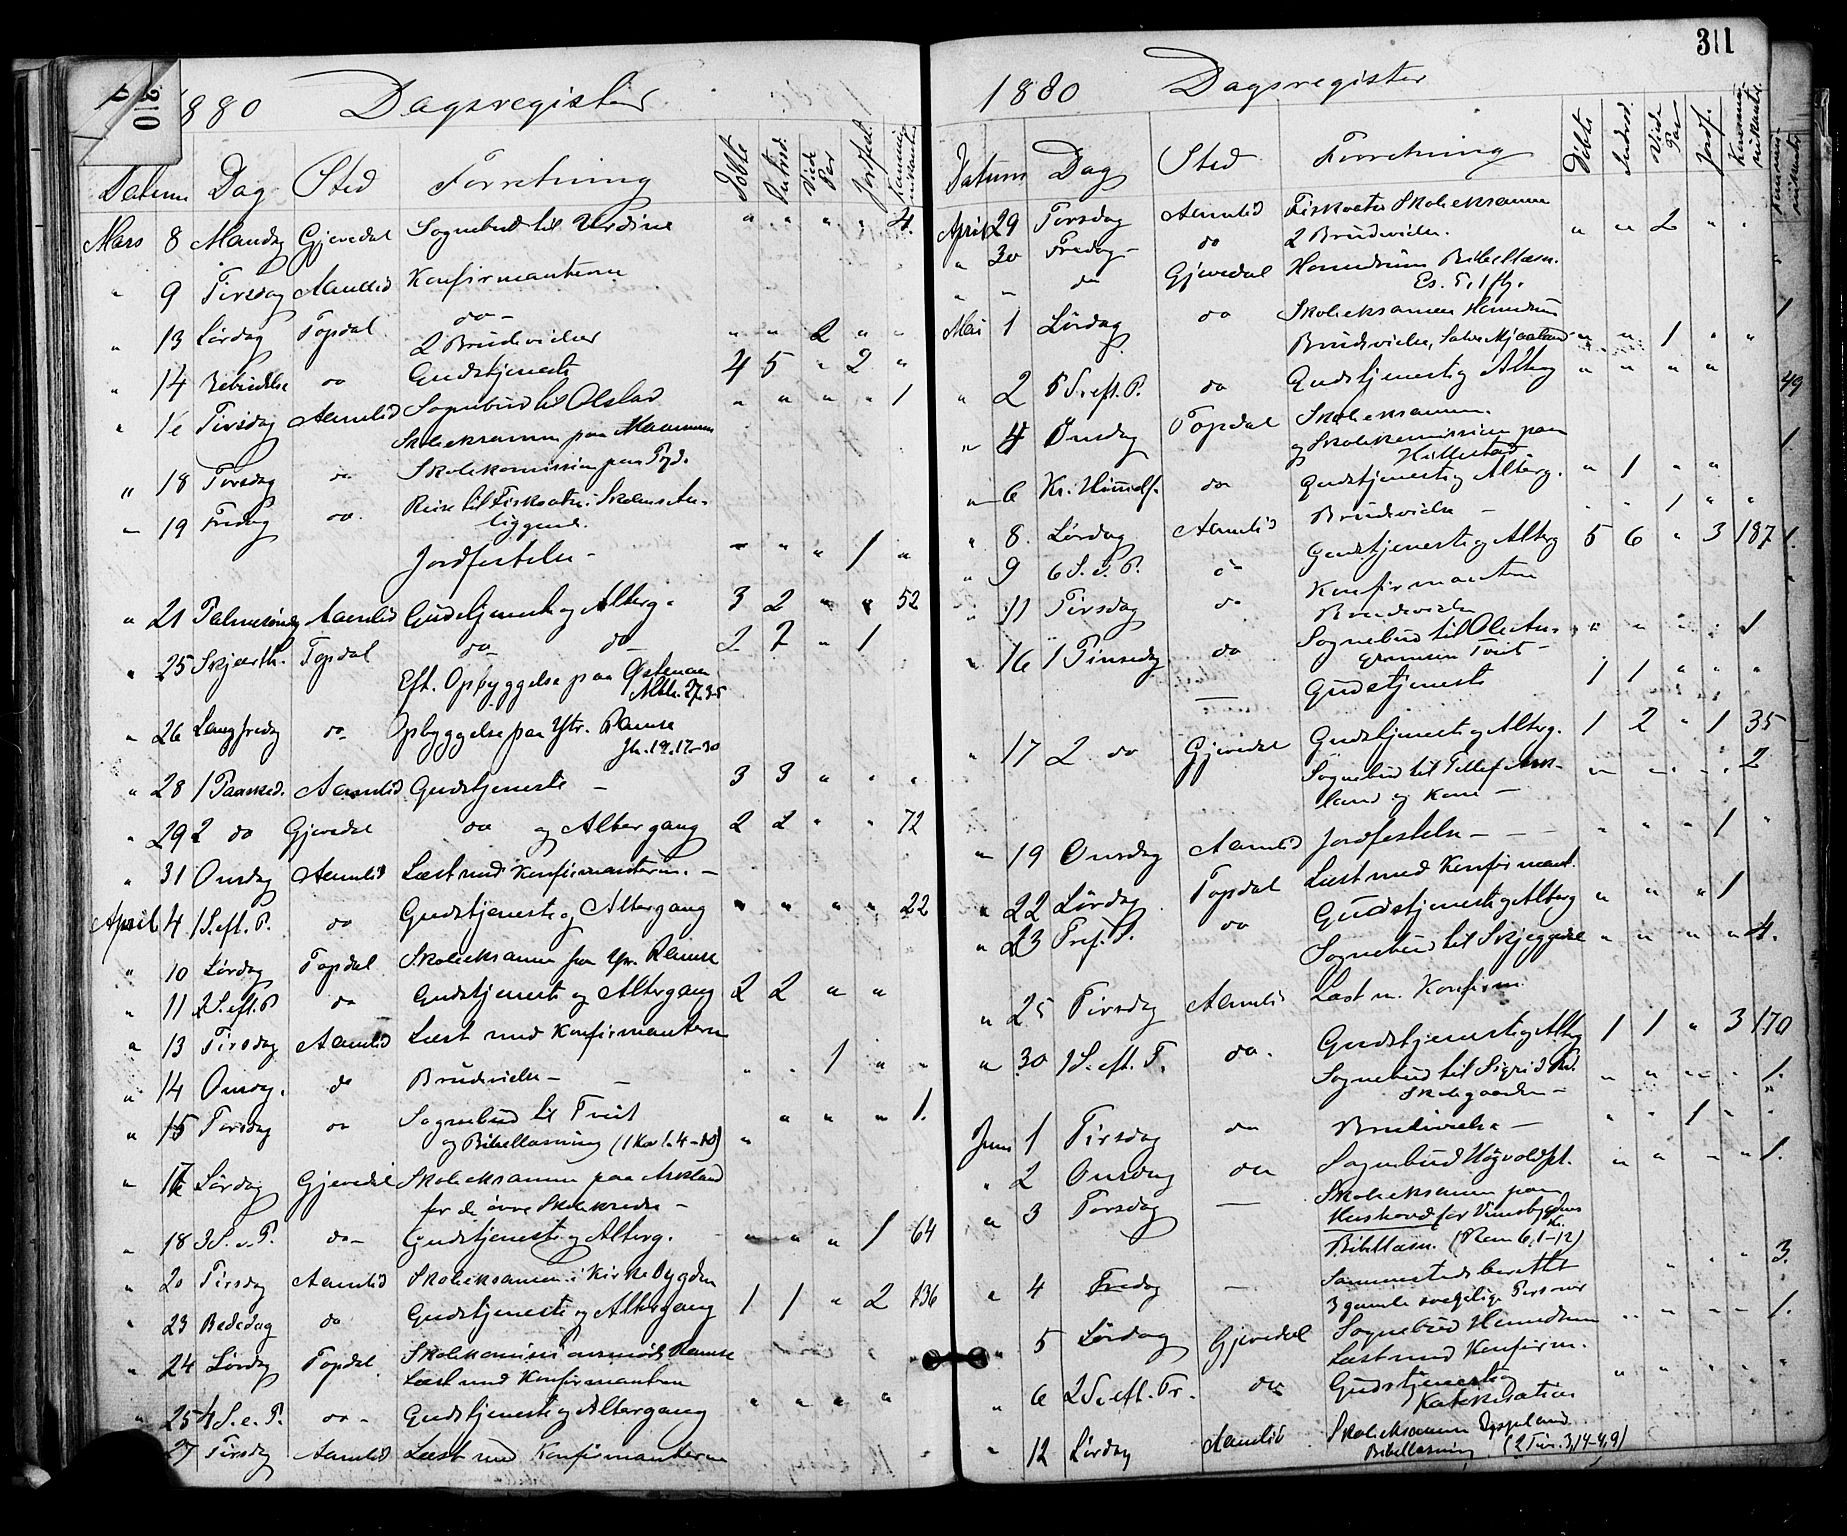 310
1880 Dagsregister
Datum Dag Sted Forretning Døbte Introd. Viede Par Jordfæst. Kommunikanter
Mars 8 Mandag Gjevedal Sognebud til Verdine " " " " 4
" 9 Tirsdag Aamlid Konfirmanterne
do
" 13 Lørdag Topdal 2 Brudevielser " " 2 " "
" 14 do Gudstjeneste 4 5 " 2 "
" 16 Tirsdag Aamlid Sognebud til Olstad " " " " 1
Skoleeksamen paa
" 18 Torsdag do Skolekomission paa
" 19 Fredag do Reise til Fiskvatn i Skolens An-
liggend.
Jordfestelse - " " " 1 "
" 21 Palmesøndag Aamlid Gudstjeneste og Alterg. 3 2 " " 52
" 25 Skjærth. Topdal do do 2 7 " 1
Eft. Opbyggelse paa
Mth. 27,35
" 26 Langfredag do Opbyggelse paa Ytr. Ramse
Jh. 19.17-30
" 28 1 Paasked. Aamlid Gudstjeneste - 3 3 " " "
" 29 2 do Gjevedal do og Altergang 2 2 " " 72
" 31 Onsdag Aamlid Læst med Konfirmanterne. -
April 4 1 S. eft. P. do Gudstjeneste og Altergang " " " " 22
" 10 Lørdag Topdal Skoleeksamen paa Yr. Ramse
" 11 2 S. eft. P do Gudstjeneste og Altergang 2 2 " "
" 13 Tirsdag Aamlid Læst med Konfirmanterne
" 14 Onsdag. do Brudevielse - " " 1 " "
" 15 Torsdag do Sognebud til Tveit " " " " 1.
og Bibellæsning (1 Kor 1.4-10)
" 17 Lørdag Gjevedal Skoleeksamen paa Askland
for de øvre Skolekredse -
" 18 3 S. e. P. do - Gudstjeneste og Alterg. " " " 1 64
" 20 Tirsdag Aamlid Skoleeksamen i Kirkebygden
" 23 Bededag do Gudstjeneste og Altergang 1 1 " 2 136
" 24 Lørdag Topdal Skolekomisionsmøde Ramse
Læst med Konfirmanterne
" 25 4 S. e. P. do - Gudstjeneste og Altergang " " " " "
" 27 Tirsdag Aamlid Læst med Konfirmanterne
311
1880 Dagsregister
Datum Dag Sted Forretning Døbte Introd. Viede Par Jordf. Kommunikanter
April 29 Torsdag Aamlid Fiskvatn Skoleeksamen
" 30 Fredag - do 2 Brudevielser. " " 2 " "
" " do Gjevedal Homdrum Bibellæsn.
Es. 5, 1 flg.
Mai 1 Lørdag do Skoleeksamen Homdrum
Brudevielse, Salve Mjaaland " " 1 " "
" 2 5 S. eft. P. do Gudstjeneste og Alterg " " " " 49
" 4 Onsdag Topdal Skoleeksamen.
og Skolekomission paa
Hillestad.
" 6 Kr. Himmelf. do Gudstjeneste og Alterg. " 1 " "
" 8. Lørdag Aamlid Brudevielse - " " 1 " "
" 9 6 S. e. P. do Gudstjeneste og Alterg 5 6 " 3 187
" 11 Tirsdag do Konfirmanterne
Brudevielse
" 16 1 Pinsedag do Sognebud til Ole " " " " 1
Tveit -
Gudstjeneste 1 1 " " "
" 17 2 do Gjevedal Gudstjeneste og Alterg. 1 2 " 1 35
Sognebud til Tellef Ask- " " " " 2
land og Kone -
" 19 Onsdag Aamlid Jordfestelse - " " " 1 "
" 22 Lørdag Topdal Læst med Konfirmant.
" 23 Tref. S. do Gudstjeneste og Alterg " " " 1
Sognebud til Skjeggedal " " " " 4.
" 25 Tirsdag Aamlid Læst m. Konfirm.
" 30 1 S. eft. T. do. Gudstjeneste og Alterg 1 1 " 3 170
Sognebud til Sigrid " " " " 1.
Juni 1 Tirsdag do Brudevielse - " " 1 " "
" 2 Onsdag do Sognebud " " " " 1.
" 3 Torsdag - Skoleeksamen paa
for
Bibellæsn. (Rom 6,1-12)
" 4 Fredag - Sammesteds berettet " " " 3.
3 gamle svagelige Personer
" 5 Lørdag Gjevedal Sognebud Homdrum " " " " 1.
Læst med Konfirm.
" 6 2 S. eft. Tr. do Gudstjeneste og " " " " "
Katekisation
" 12 Lørdag Aamlid Skoleeksamen
Bibellæsning (2 Tim. 3,14-4,9)